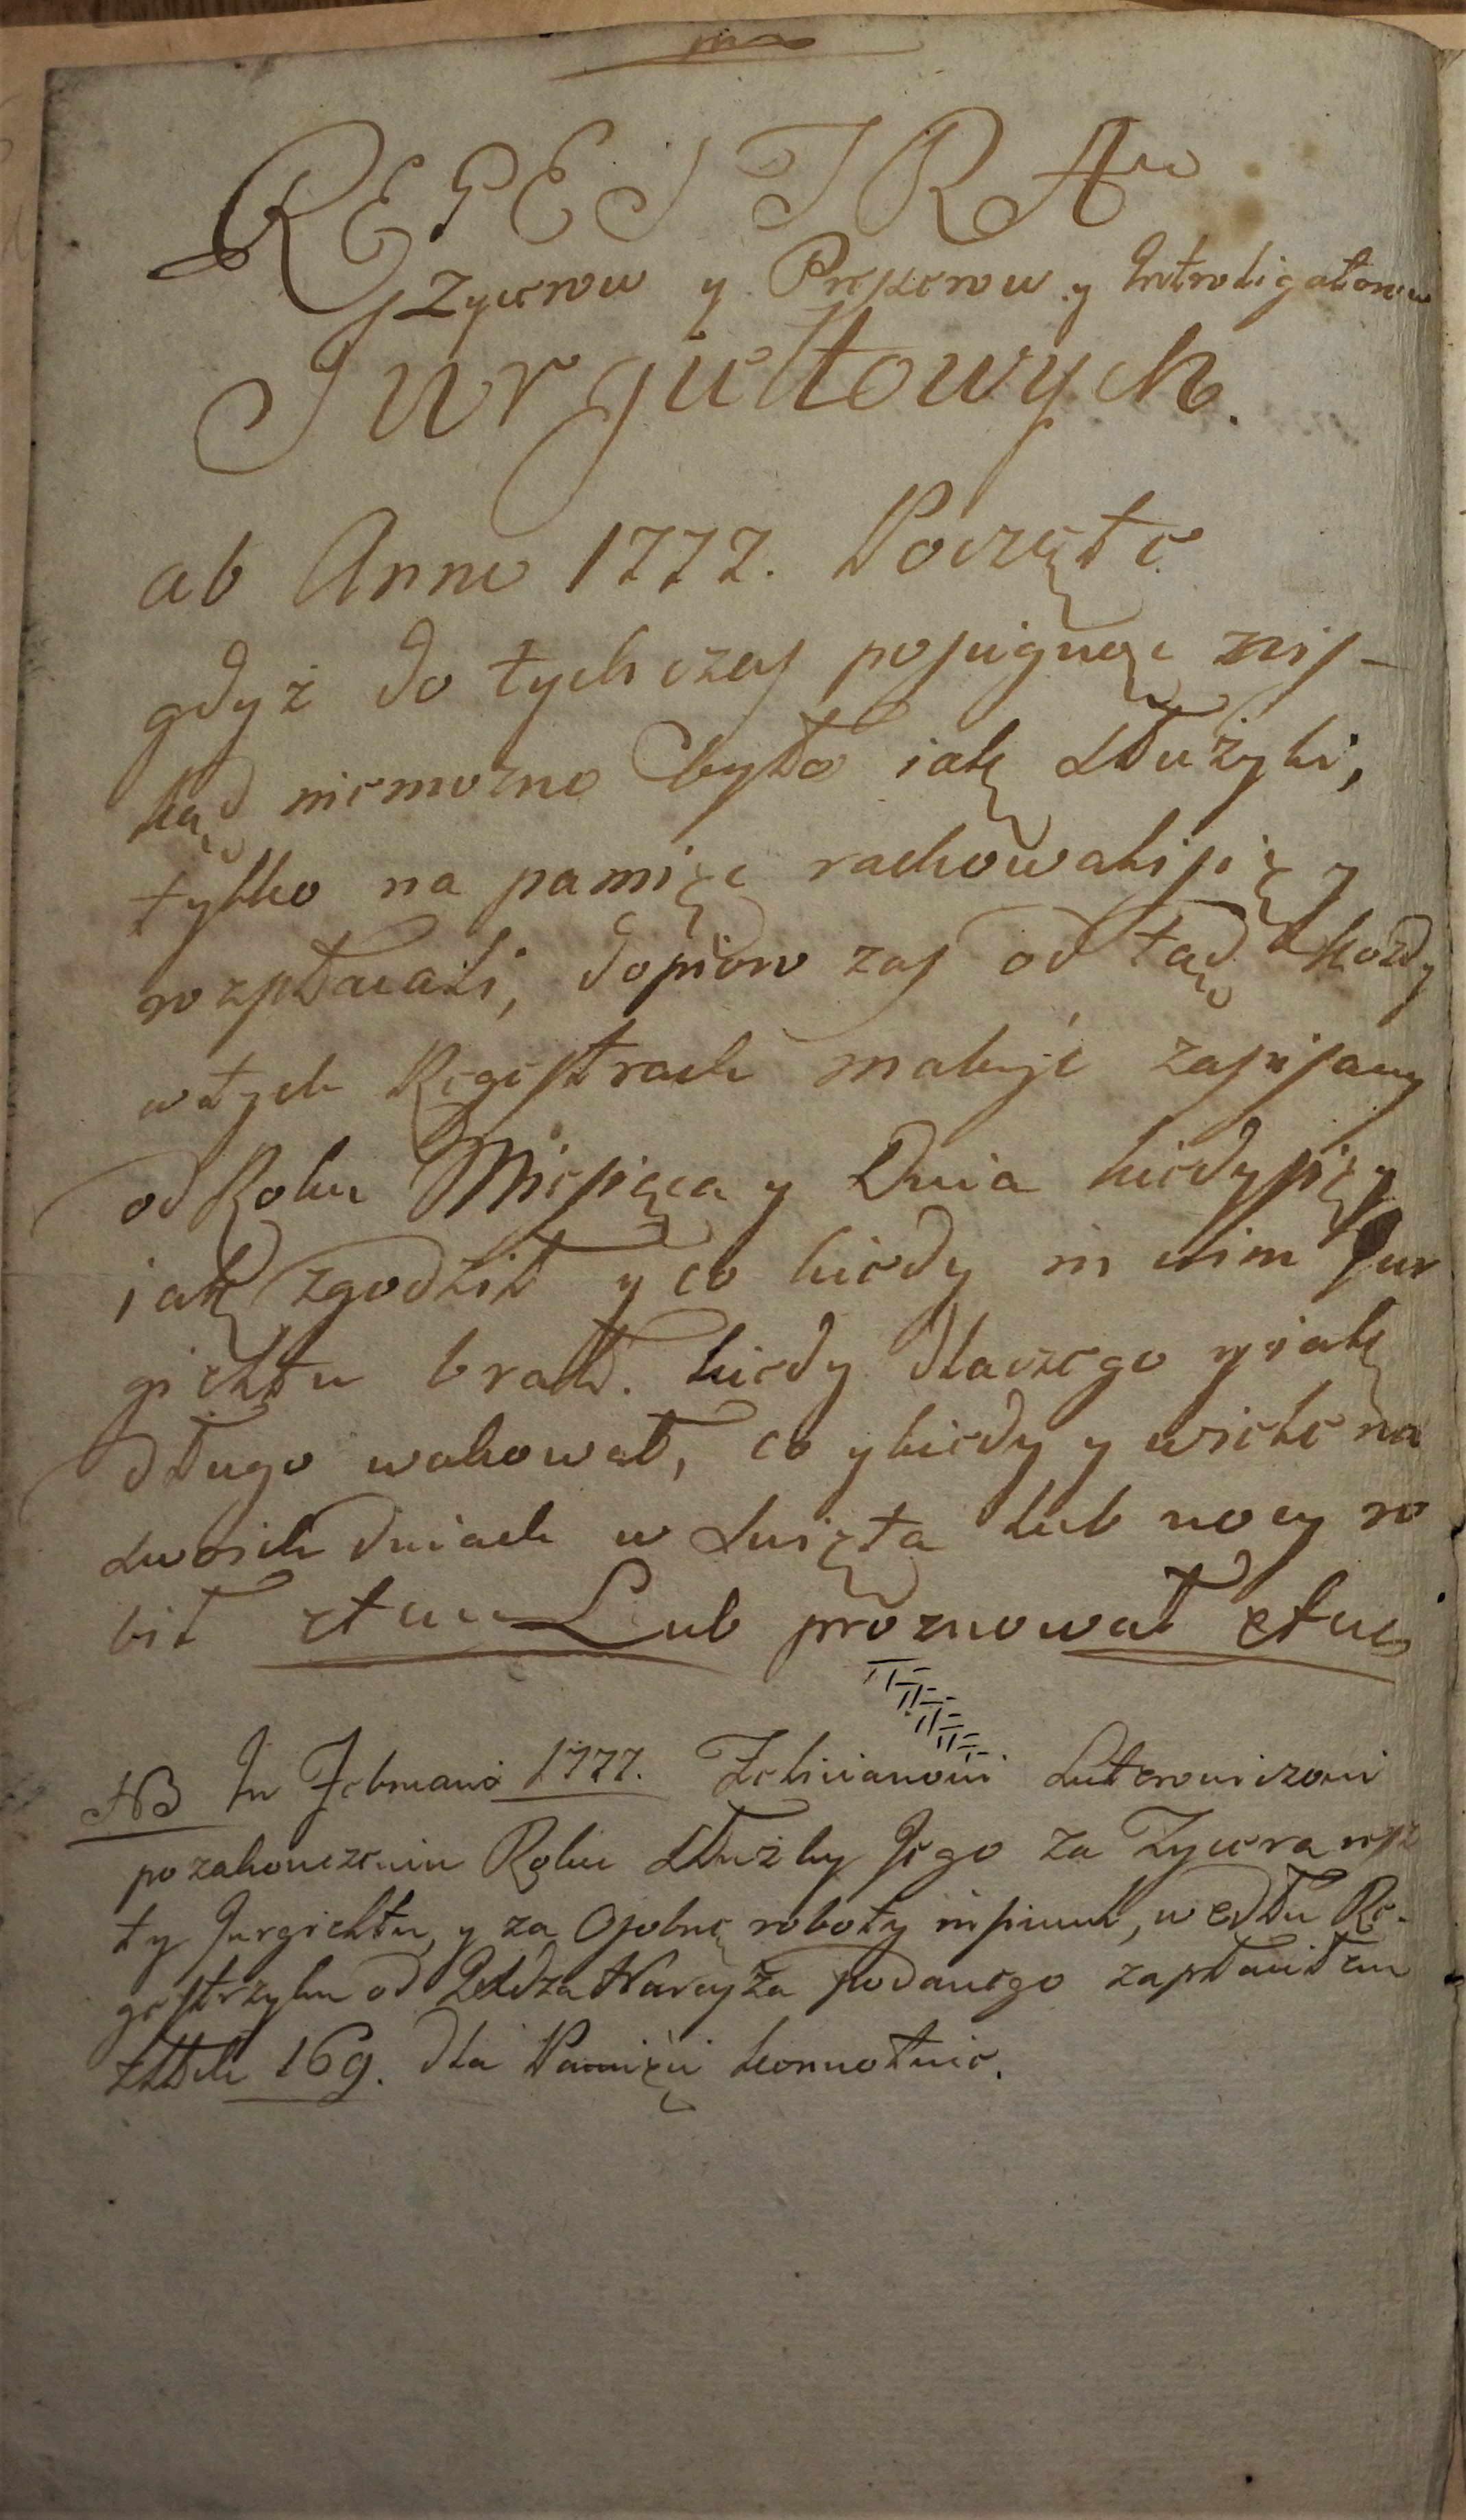 REGESTRA
Zycerow y Preserow y Introligatorow
Jurgieltowych.
ab Anno 1777. Poczęte
gdyż do tych czas posiągnąc znis-
kąd niemozno było iak słuzyli,
tylko na pamięc rachowali się y
rozpłacali, dopioro zas od tąd kozdy
w tych Regestrach ma byc zapisany
od Roku Miesiąca y Dnia kiedy się y
iak zgodził y co kiedy in vim Jur
gieltu brał. kiedy dlaczego y iak
długo wakował, co y kiedy y wiele na
swoich dniach w swięta lub nocy ro
bił etc Lub proznował etc
NB In Februario 1777. Felicianowi Luterowiczowi
po zakonczeniu Roku słuzby Jego za Zycera resz
ty Jurgieltu, y za Osobne roboty in simul, wedłu Re-
gestrzyku od Xdza Narcyza podanego zapłaciłem
169. dla Pamięci konnotuie.